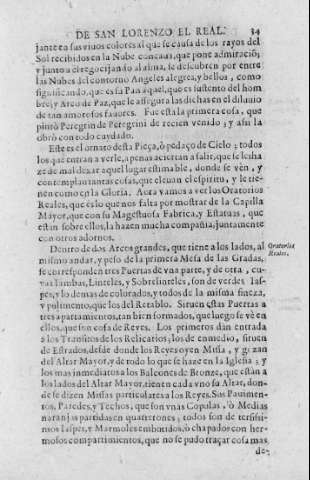 DE SAN LORENZO EL REAL. 34
jante en sus viuos colores al que se causa de los rayos del
Sol recibidos en la Nube concaua, que pone admiració;
y junto a el regocijando al alma, se descubren por entre
las Nubes del contorno Angeles alegres, y bellos, como
significando, que es su Paz aquel, que es sustento del hom
bre, y Arco de Paz, que le assegura las dichas en el diluuio
de tan amorosos fauores. Fue esta la primera cosa, que
pintò Peregrin de Peregrini de recien venido; y assi la
obrò con todo cuydado.
Este es el ornato desta Pieça, ò pedaço de Cielo; todos
los que entran a verle, apenas aciertan a salir, que se les ha
ze de mal dexar aquel lugar estimable, donde se vèn, y
contemplan tantas cosas, que eleuan el espiritu, y le tie-
nen como en la Gloria. Aora vamos a ver los Oratorios
Reales, que es lo que nos falta por mostrar de la Capilla
Mayor, que con su Magestuosa Fabrica, y Estatuas, que
estàn sobre ellos, la hazen mucha compañia, juntamente
con otros adornos.
Dentro de dos Arcos grandes, que tiene a los lados, al
Oratorios
Reales.
mismo andar, y peso de la primera Mesa de las Gradas,
se corresponden tres Puertas de vna parte, y de otra, cu-
yas Iambas, Linteles, y Sobrelinteles, son de verdes Ias-
pes, y lo demas de colorados, y todos de la misma fineza,
y pulimento, que los del Retablo. Siruen estas Puertas a
tres apartamientos, tan bien formados, que luego se vè en
ellos, que son cosa de Reyes. Los primeros dàn entrada
a los Transitos de los Relicarios, los de enmedio, siruen
de Estrados, desde donde los Reyes oyen Missa, y gozan
del Altar Mayor, y de todo lo que se haze en la Iglesia; y
los mas inmediatos a los Balcones de Bronze, que estàn a
los lados del Altar Mayor, tienen cada vno su Altar, don-
de se dizen Missas particulares a los Reyes. Sus Pauimen-
tos, Paredes, y Techos, que son vnas Copulas, ò Medias
naranjas partidas en quarterones, todos son de tersissi-
mos Iaspes, y Marmoles embutidos, ò chapados con her-
mosos compartimientos, que no se pudo traçar cosa mas
de-